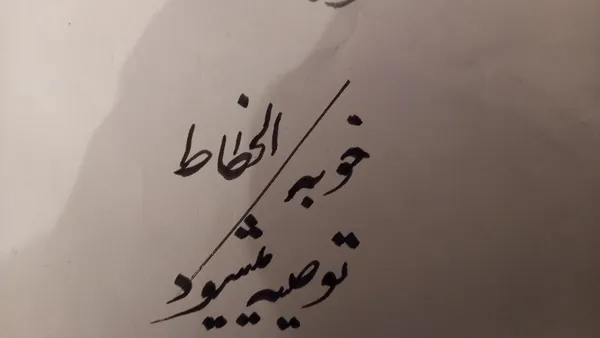 خوبه / الخطاط
توصیه میشود